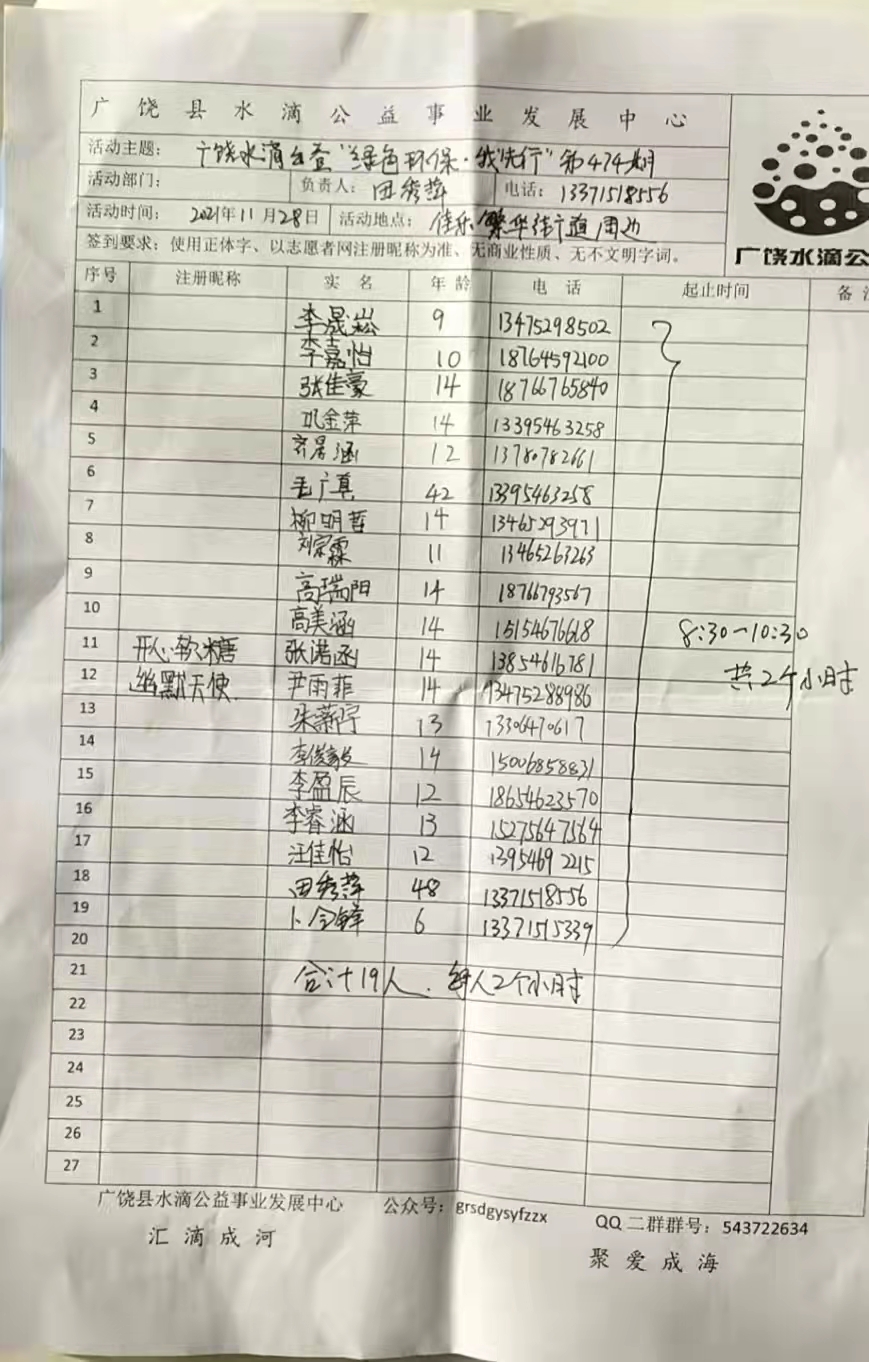 广饶县水滴公益事业发展中心
活动主题：广饶水滴公益"绿色环保·我先行"第474期
活动部门： 负责人：田秀萍 电话：13371518556
活动时间：2021年11月28日 活动地点：佳乐繁华街道周边
签到要求：使用正体字、以志愿者网注册昵称为准、无商业性质、无不文明字词。
广饶水滴公
序号 注册昵称 实名 年龄 电话 起止时间 备
1 李晟崧 9 13475298502
2 李嘉怡 10 18764592100
3 张佳豪 14 18766765840
4 巩金萍 14 13395463258
5 涵 12 13780782661
6 毛广真 42 13395463258
7 柳明哲 14 13465293971
8 刘宗霖 11 13465263263
9 高瑞阳 14 18766793567
10 高美涵 14 15154676618 8:30-10:30
11 开心软糖 张浩函 14 13854616781
12 幽默天使 尹雨菲 14 13475288986 共2个小时
13 朱薪宇 13 13306470617
14 李俊毅 14 15006858831
15 李盈辰 12 18654623570
16 李睿涵 13 15275647564
17 汪佳怡 12 13954692215
18 田秀萍 48 13371518556
19 卜令锋 6 13371515339
20
21 合计19人、每人2个小时
22
23
24
25
26
27
广饶县水滴公益事业发展中心 公众号：grsdgysyfzzx QQ二群群号：543722634
汇滴成河 聚爱成海